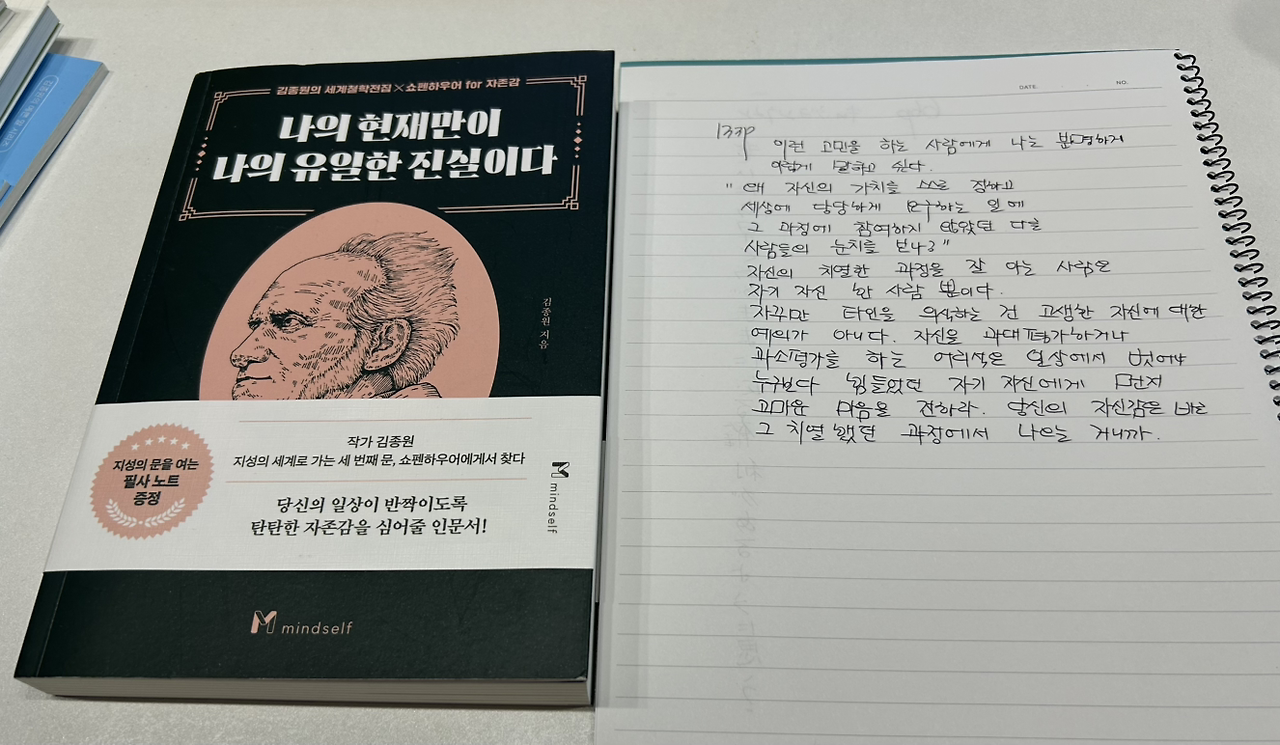 김종원의 세계철학전집×쇼펜하우어 for 자존감
나의 현재만이
나의 유일한 진실이다
김종원 지음
지성의 문을 여는
필사 노트
증정
작가 김종원
지성의 세계로 가는 세 번째 문, 쇼펜하우어에게서 찾다
당신의 일상이 반짝이도록
탄탄한 자존감을 심어줄 인문서!
mindself
mindself
DATE.
NO.
133p
이런 고민을 하는 사람에게 나는 분명하게
이렇게 말하고 싶다.
"왜 자신의 가치를 스스로 정하고
세상에 당당하게 요구하는 일에
그 과정에 참여하지 않았던 다른
사람들의 눈치를 보나?"
자신의 치열한 과정을 잘 아는 사람은
자기 자신 한 사람 뿐이다.
자꾸만 타인을 의식하는 건 고생한 자신에 대한
예의가 아니다. 자신을 과대평가하거나
과소평가를 하는 어리석은 일상에서 벗어나
누구보다 힘들었던 자기 자신에게 먼저
고마운 마음을 전하라. 당신의 자신감은 바로
그 치열했던 과정에서 나오는 거니까.